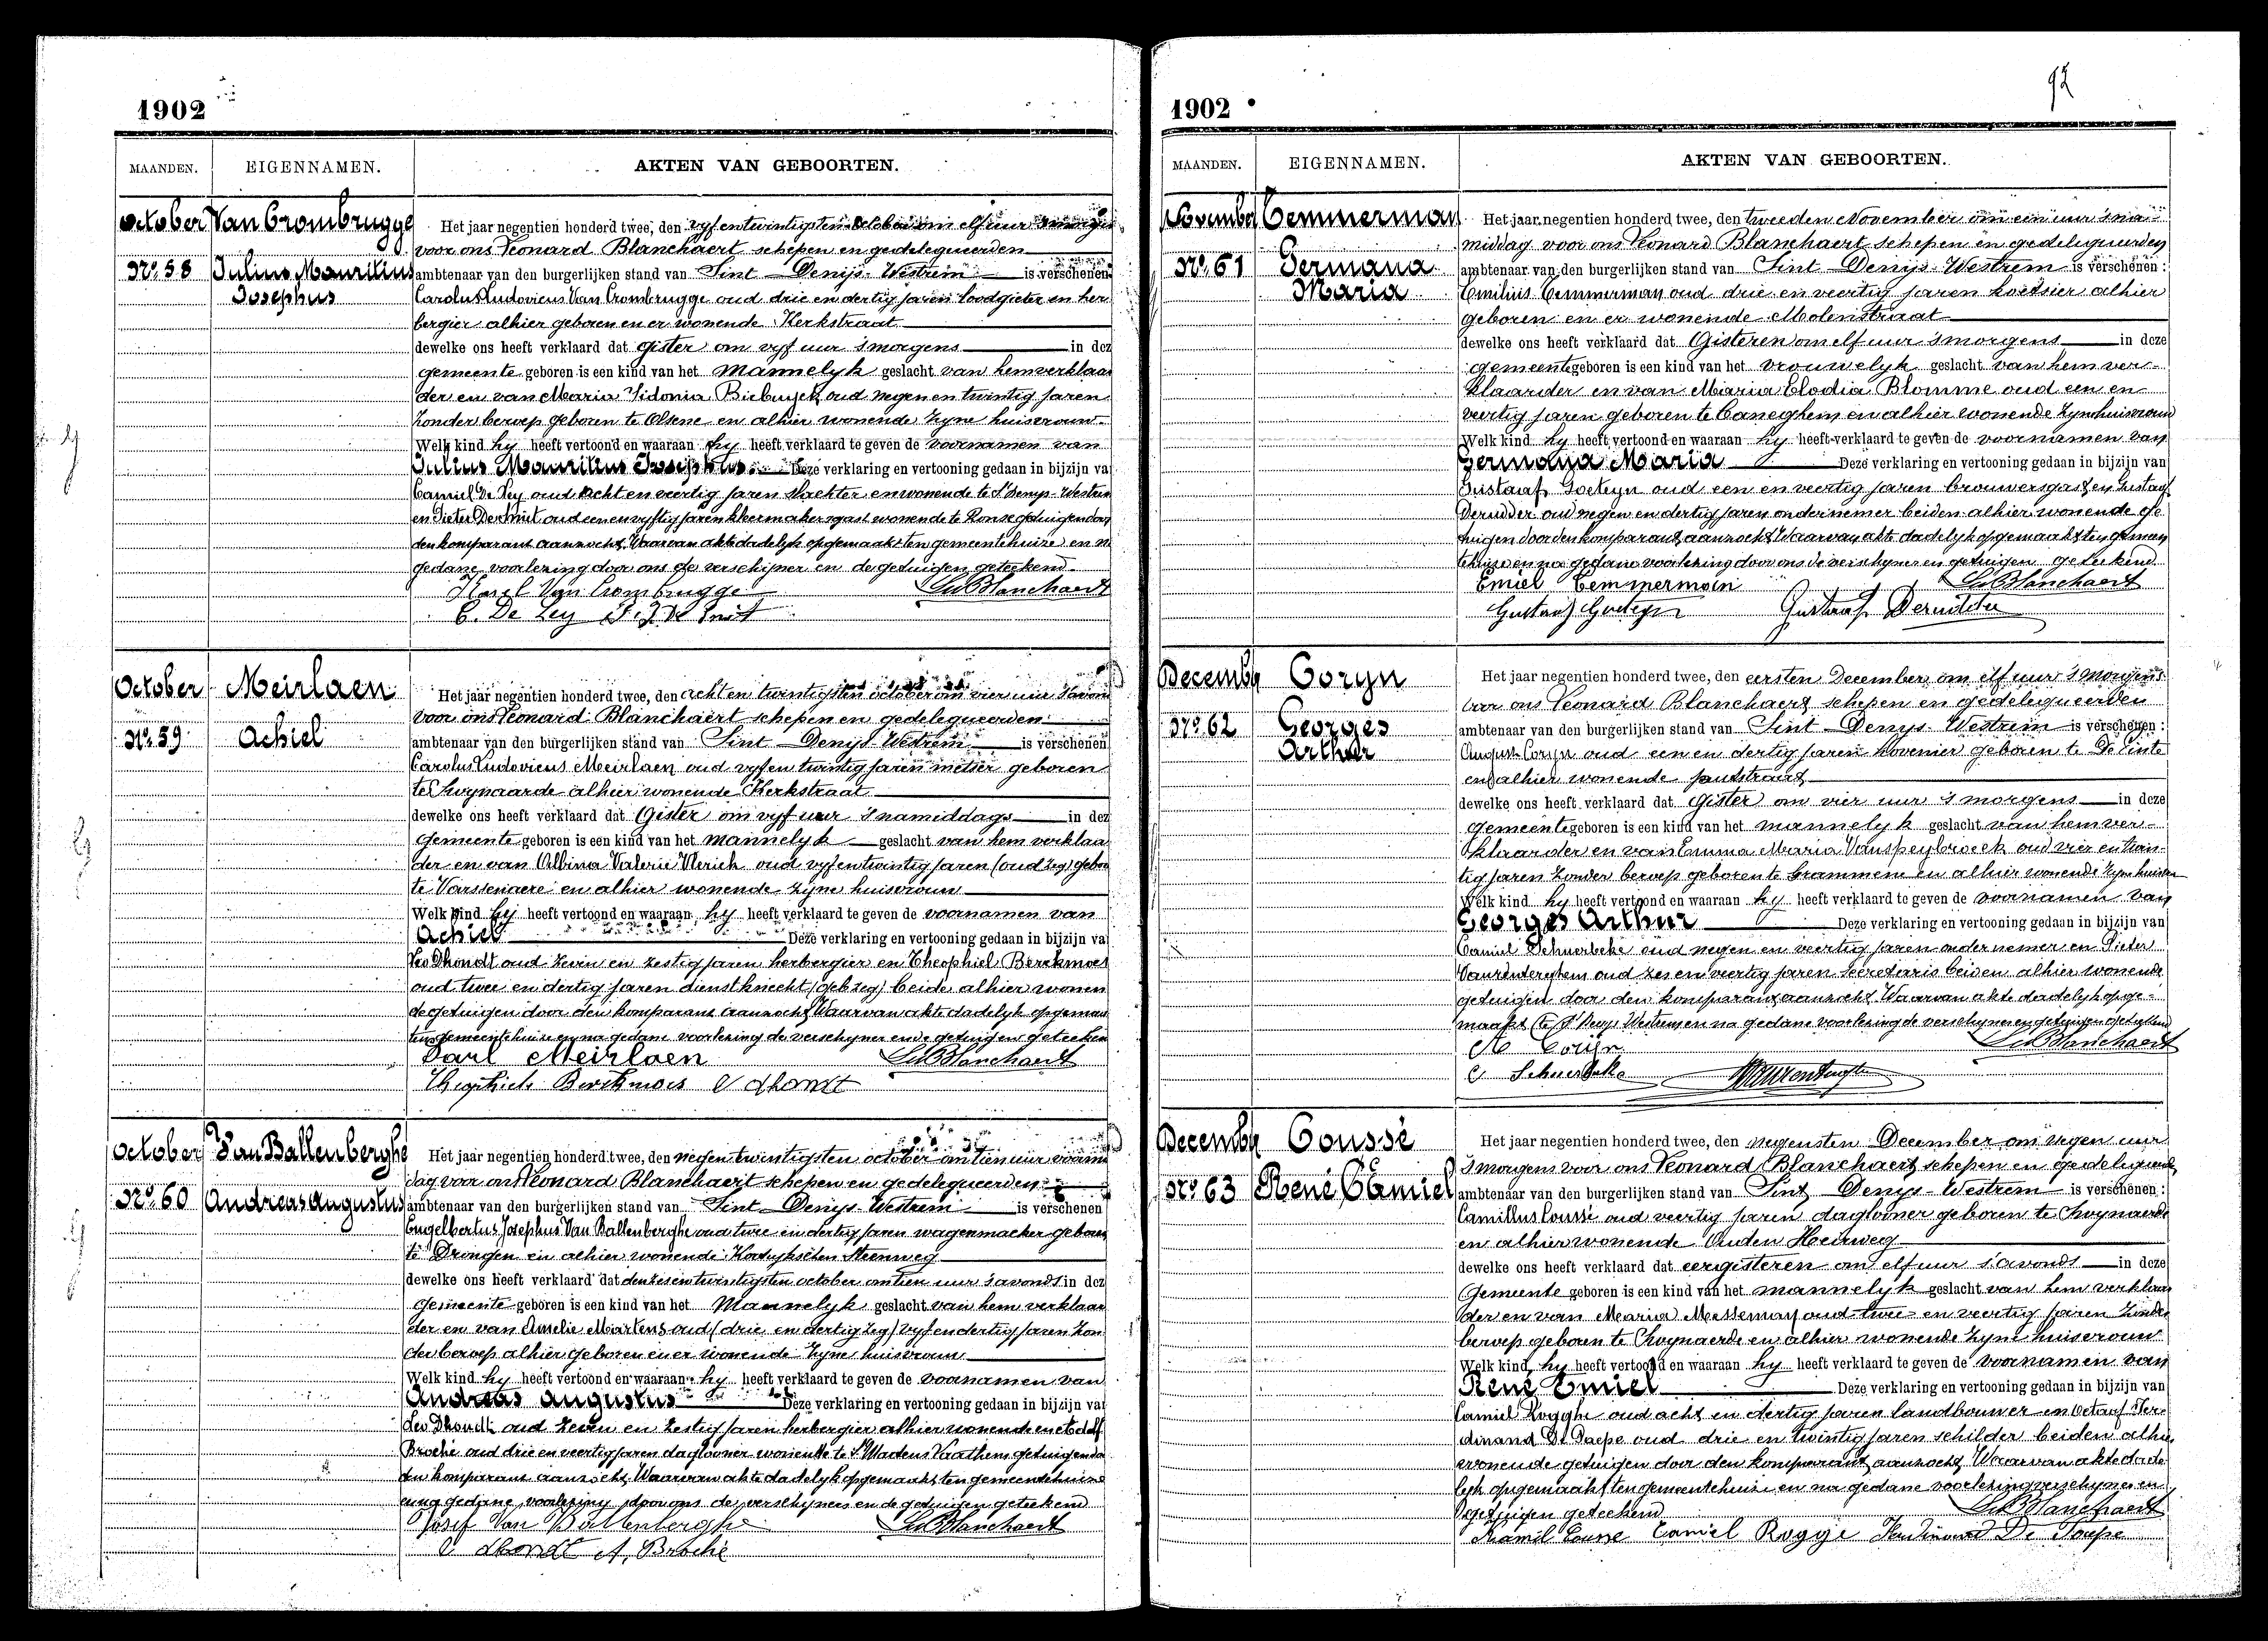 1902
MAANDEN. EIGENNAMEN. AKTEN VAN GEBOORTEN.
October Van Crombrugge
Nº 58 Julius Maurilius
Josephus
Het jaar negentien honderd twee, den vyfentwintigsten October om elf uur 's morgens
voor ons Leonard Blanchaert schepen en gedelegueerden
ambtenaar van den burgerlijken stand van Sint Denijs-Westrem is verschenen
Carolus Ludovicus Van Crombrugge oud drie en dertig jaren loodgieter en her
bergier alhier geboren en er wonende Kerkstraat
dewelke ons heeft verklaard dat Gister om vyf uur 's morgens in dez
gemeente geboren is een kind van het Mannelyk geslacht van hem verklaar
der en van Maria Sidonia oud negen en twintig jaren
zonder beroep geboren te Olsene en alhier wonende zyne huisvrouw
Welk kind hy heeft vertoond en waaraan hy heeft verklaard te geven de voornamen van
Julius Maurilius Josephus Deze verklaring en vertooning gedaan in bijzijn va
Camiel De Ley oud acht en veertig jaren slachter en wonende te St Denys-Westrem
en Pieter oud een en vyftig jaren wonende te Ronse getuigen door
den komparant aanzocht Waarvan akte dadelyk opgemaakt ten gemeentehuize en na
gedane voorlezing door ons de verschijner en de getuigen geteekend
Karel Van Crombrugge Ld Blanchaert
C. De Ley
October Meirlaen
Nº 59 Achiel
Het jaar negentien honderd twee, den achten twintigsten october om vier uur 's avonds
voor ons Leonard Blanchaert schepen en gedelegueerden
ambtenaar van den burgerlijken stand van Sint Denijs-Westrem is verschenen
Carolus Ludovicus Meirlaen oud vyf en twintig jaren metser geboren
te Zwynaarde alhier wonende Kerkstraat
dewelke ons heeft verklaard dat Gister om vyf uur 's namiddags in dez
gemeente geboren is een kind van het mannelyk geslacht van hem verklaar
der en van Albina Valerie oud vyfentwintig jaren (oud zeg) gebor
te Varssenaere en alhier wonende zyne huisvrouw
Welk kind hy heeft vertoond en waaraan hy heeft verklaard te geven de voornamen van
Achiel Deze verklaring en vertooning gedaan in bijzijn va
Leo Dhondt oud zeven en zestig jaren herbergier en Theophiel Berckmoes
oud twee en dertig jaren dienstknecht (geb zeg) beide alhier wonen
de getuigen door den komparant aanzocht Waarvan akte dadelyk opgemaa
ten gemeentehuize en na gedane voorlezing de verschyner en de getuigen geteeken
Karl Meirlaen Ld Blanchaert
Theophiel Berckmoes L dhondt
October Van Ballenberghe
Nº 60 Andreas Augustus
Het jaar negentien honderd twee, den negen twintigsten october om tien uur voormid
dag voor ons Leonard Blanchaert schepen en gedelegueerden
ambtenaar van den burgerlijken stand van Sint Denijs-Westrem is verschenen
Engelbertus Josephus Van Ballenberghe oud twee en dertig jaren wagenmaker geboren
te Drongen en alhier wonende Kortrykschen Steenweg
dewelke ons heeft verklaard dat den zesen twintigsten october om tien uur 's avonds in dez
gemeente geboren is een kind van het Mannelyk geslacht van hem verklaar
der en van Amelie Martens oud (drie en dertig zeg) vyf en dertig jaren zon
der beroep alhier geboren en er wonende zyne huisvrouw
Welk kind hy heeft vertoond en waaraan hy heeft verklaard te geven de voornamen van
Andreas Augustus Deze verklaring en vertooning gedaan in bijzijn va
Leo Dhondt oud zeven en zestig jaren herbergier alhier wonende en Adolf
Broché oud drie en veertig jaren daglooner wonende te St Martens Laathem getuigen door
den komparant aanzocht Waarvan akte dadelyk opgemaakt ten gemeentehuize
en na gedane voorlezing door ons de verschyners en de getuigen geteekend
Josef Van Ballenberghe Ld Blanchaert
L dhondt A. Broché
92
1902
MAANDEN. EIGENNAMEN. AKTEN VAN GEBOORTEN.
November Cemmerman
Nº 61 Germana
Maria
Het jaar negentien honderd twee, den tweeden November om een uur 's na
middag voor ons Leonard Blanchaert schepen en gedelegueerden
ambtenaar van den burgerlijken stand van Sint Denys-Westrem is verschenen :
Emilius Cemmerman oud drie en veertig jaren koetsier alhier
geboren en er wonende Molenstraat
dewelke ons heeft verklaard dat Gisteren om elf uur 's morgens in deze
gemeente geboren is een kind van het vrouwelyk geslacht van hem ver-
klaarder en van Maria Elodia Blomme oud een en
veertig jaren geboren te Caneghem en alhier wonende zyne huisvrouw
Welk kind hy heeft vertoond en waaraan hy heeft verklaard te geven de voornamen van
Germana Maria Deze verklaring en vertooning gedaan in bijzijn van
Gustaaf Goeteyn oud een en veertig jaren brouwersgast en Gustaaf
Derudder oud negen en dertig jaren ondernemer beiden alhier wonende ge
tuigen door den komparant aanzocht Waarvan akte dadelyk opgemaakt ten gemeen
tehuize en na gedane voorlezing door ons de verschyner en getuigen geteekend
Emiel Cemmerman Ld Blanchaert
Gustaaf Goeteyn Gustaaf Derudder
December Coryn
Nº 62 Georges
Arthur
Het jaar negentien honderd twee, den eersten December om elf uur 's morgens
voor ons Leonard Blanchaert schepen en gedelegueerden
ambtenaar van den burgerlijken stand van Sint Denys-Westrem is verschenen :
August Coryn oud een en dertig jaren hovenier geboren te De Pinte
en alhier wonende putstraat
dewelke ons heeft verklaard dat Gister om vier uur 's morgens in deze
gemeente geboren is een kind van het mannelyk geslacht van hem ver-
klaarder en van Emma Maria Vanspeybroeck oud vier en twin-
tig jaren zonder beroep geboren te Grammene en alhier wonende zyne huisvr
Welk kind hy heeft vertoond en waaraan hy heeft verklaard te geven de voornamen van
Georges Arthur Deze verklaring en vertooning gedaan in bijzijn van
Camiel Schuerbeke oud negen en veertig jaren ondernemer en Pieter
oud zes en veertig jaren secretaris beiden alhier wonende
getuigen door den komparant aanzocht Waarvan akte dadelyk opge-
maakt te St Denys Westrem en na gedane voorlezing de verschyner en getuigen geteekend
A Coryn Ld Blanchaert
C Schuerbeke
December Coussé
Nº 63 René Camiel
Het jaar negentien honderd twee, den negensten December om negen uur
's morgens voor ons Leonard Blanchaert schepen en gedelegueerd
ambtenaar van den burgerlijken stand van Sint Denys-Westrem is verschenen :
Camillus Coussé oud veertig jaren daglooner geboren te Zwynaerde
en alhier wonende Ouden Heirweg
dewelke ons heeft verklaard dat eergisteren om elf uur 's avonds in deze
Gemeente geboren is een kind van het mannelyk geslacht van hem verklaar
der en van Maria Messeman oud twee en veertig jaren zonder
beroep geboren te Zwynaerde en alhier wonende zyne huisvrouw
Welk kind hy heeft vertoond en waaraan hy heeft verklaard te geven de voornamen van
René Emiel Deze verklaring en vertooning gedaan in bijzijn van
Camiel Rogghe oud acht en dertig jaren landbouwer en Octaaf Fer-
dinand De Paepe oud drie en twintig jaren schilder beiden alhier
wonende getuigen door den komparant aanzocht Waarvan akte dade
lyk opgemaakt ten gemeentehuize en na gedane voorlezing verschyner en
getuigen geteekend Ld Blanchaert
Kamil Cousse Camiel Rogge Ferdinand De Paepe